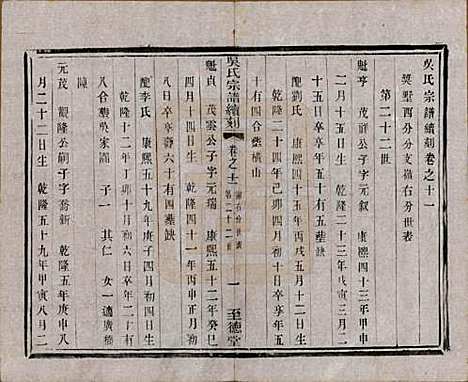 吳氏宗譜續刻卷之十一
奬墅西分分支嶺右分世表
第二十二世
魁亭 茂祥公子字元叙 康熙四十三年甲申
二月十五日生 乾隆二十三年戊寅三月二
十五日卒年五十有五墓缺
配劉氏 康熙四十五年丙戌五月十二日生
乾隆二十四年己卯四月十二日卒年五
十有四合墓橫山
吳氏宗譜續刻
卷之十一
第二十二世
一
至德堂
魁貞 茂雲公子字元瑞 康熙五十二年癸巳
八月二十四日生 乾隆四十一年丙申正月初
八日卒年六十有四墓缺
配李氏 康熙五十九年庚子四月初四日生
乾隆十二年丁卯十月初六日卒年二十有
八合墓吳家 子一 其仁 女一適廣橋
陳
元茂 觀隆公嗣子字喬新 乾隆五年庚申八
月二十二日生 乾隆五十九年甲寅八月二